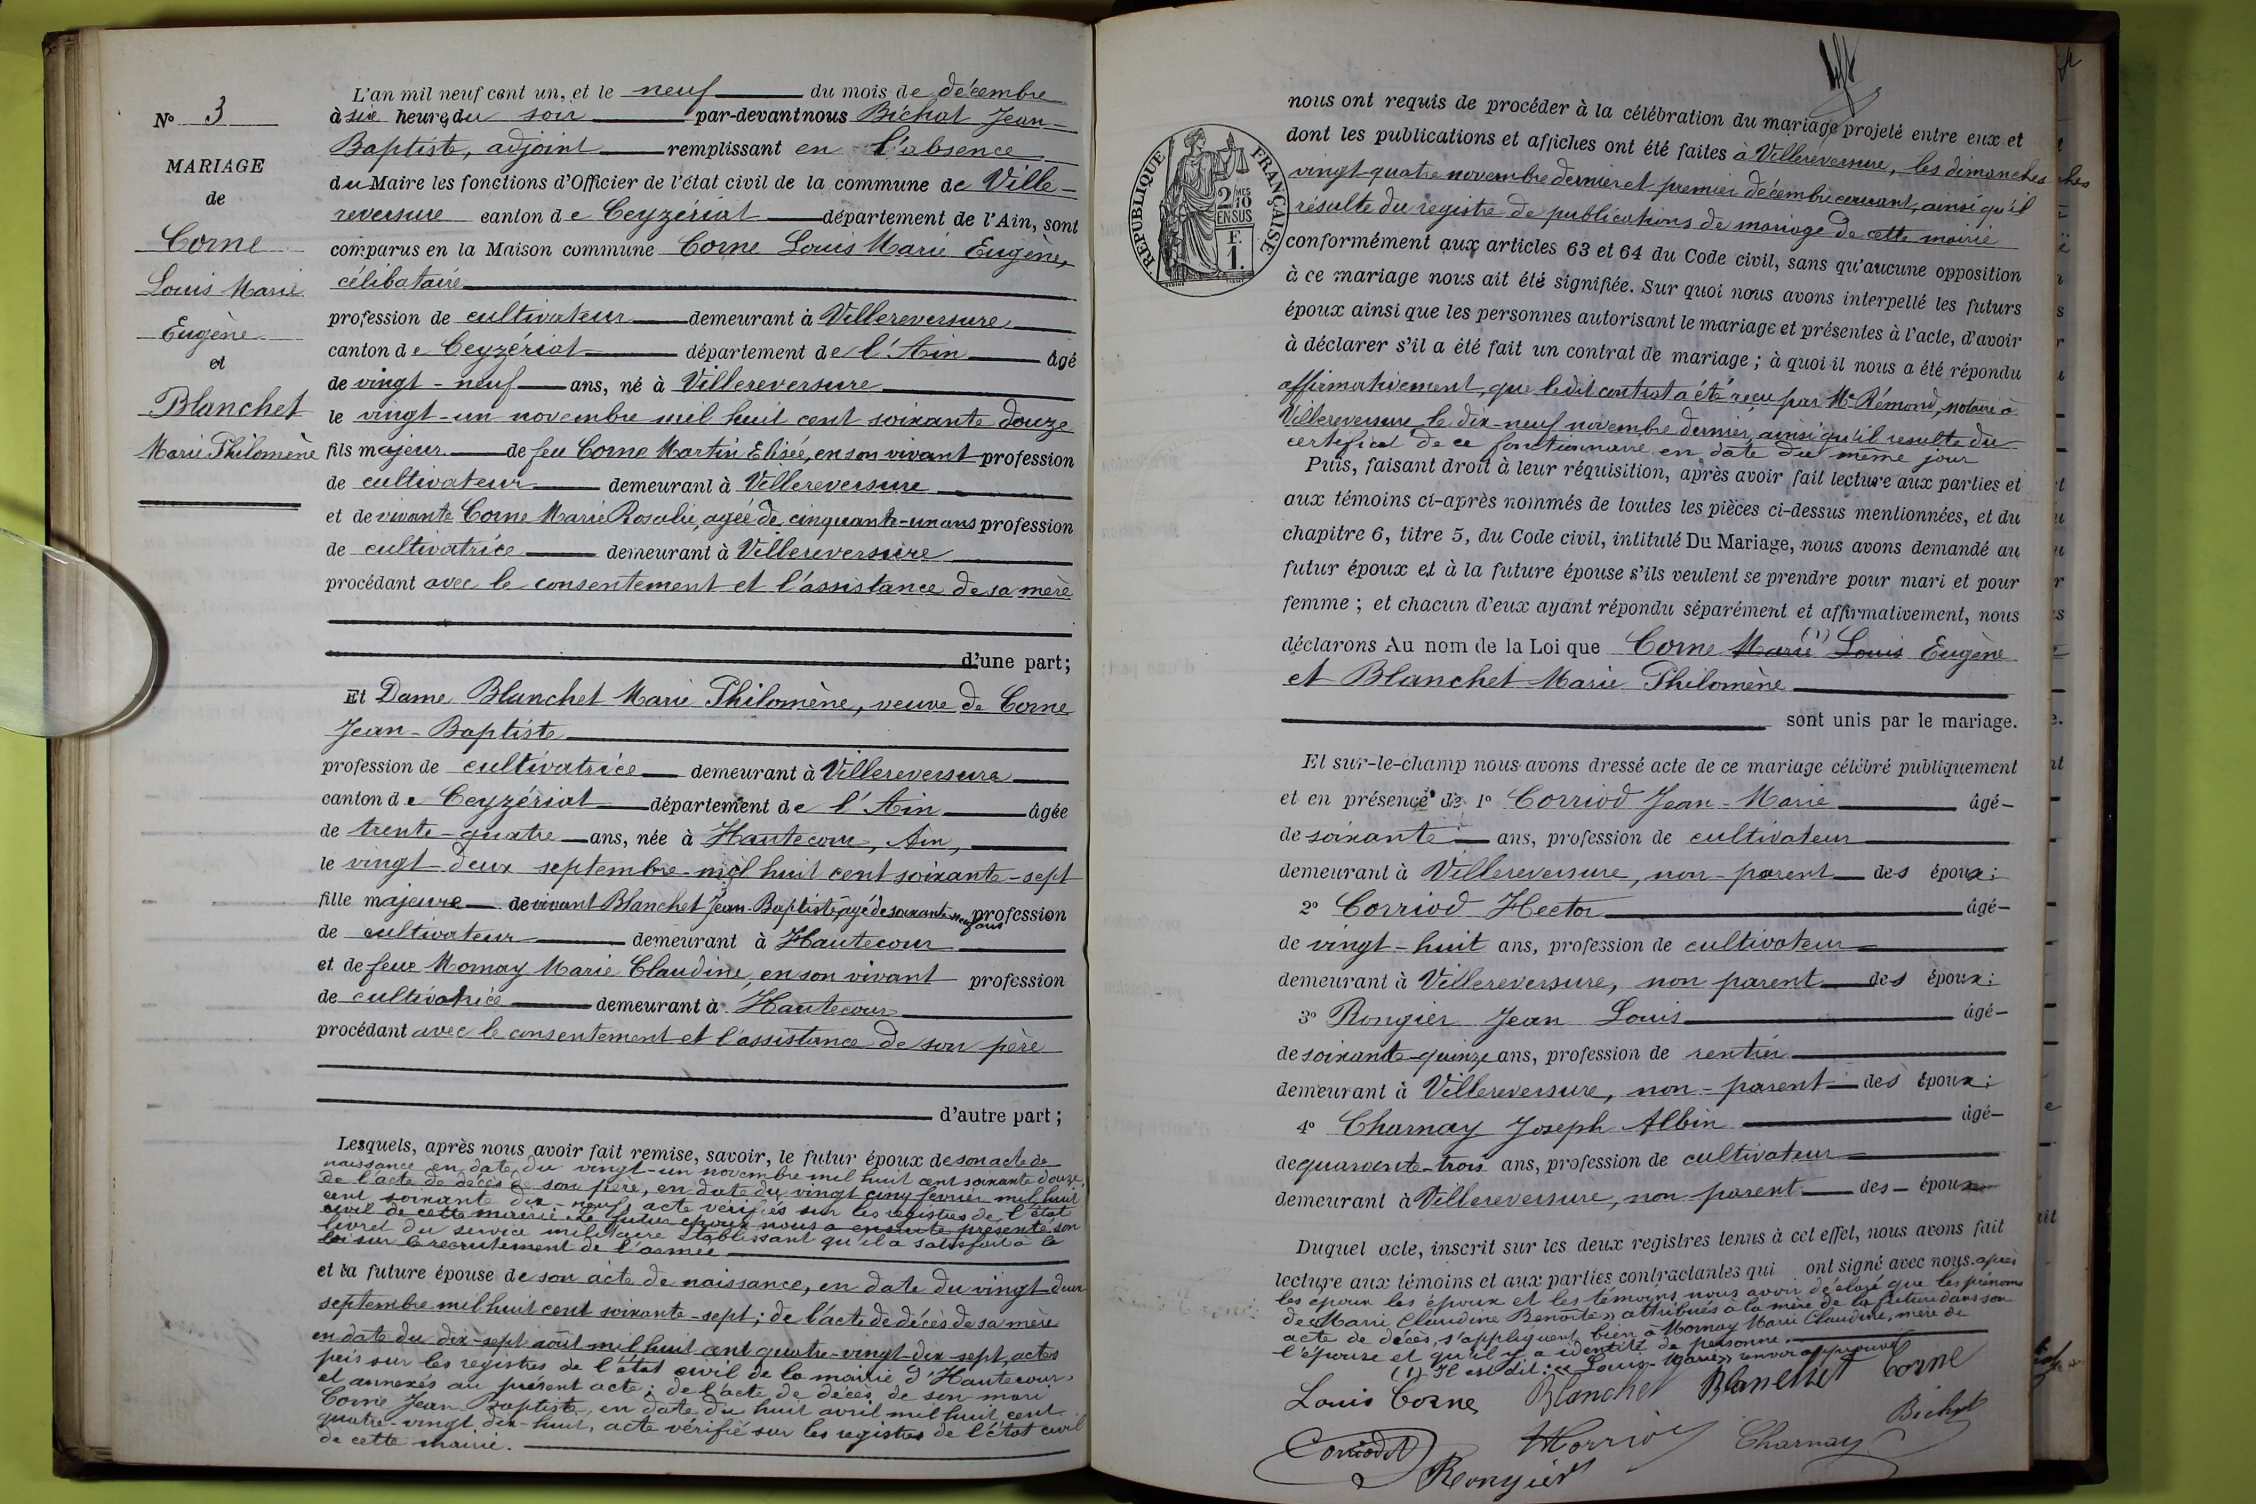 N° 3
MARIAGE
de
Corne
Louis Marie
Eugène
et
Blanchet
Marie Philomène
L'an mil neuf cent un, et le neuf du mois de décembre
à six heures du soir par-devant nous Bichat Jean-
Baptiste, adjoint remplissant en l'absence
du Maire les fonctions d'Officier de l'état civil de la commune de Ville-
reversure canton de Ceyzériat département de l'Ain, sont
comparus en la Maison commune Corne Louis Marie Eugène,
célibataire
profession de cultivateur demeurant à Villereversure
canton de Ceyzériat département de l'Ain âgé
de vingt-neuf ans, né à Villereversure
le vingt-un novembre mil huit cent soixante douze
fils majeur de feu Corne Martin Elisée, en son vivant profession
de cultivateur demeurant à Villereversure
et de vivante Corne Marie Rosalie, agée de cinquante-un ans profession
de cultivatrice demeurant à Villereversure
procédant avec le consentement et l'assistance de sa mère
d'une part;
Et Dame Blanchet Marie Philomène, veuve de Corne
Jean-Baptiste
profession de cultivatrice demeurant à Villereversure
canton de Ceyzériat département de l'Ain âgée
de trente-quatre ans, née à Hautecour, Ain,
le vingt-deux septembre mil huit cent soixante-sept
fille majeure de vivant Blanchet Jean-Baptiste, agé de soixante-neuf ans profession
de cultivateur demeurant à Hautecour
et de feue Mornay Marie Claudine, en son vivant profession
de cultivatrice demeurant à Hautecour
procédant avec le consentement et l'assistance de son père
d'autre part;
Lesquels, après nous avoir fait remise, savoir, le futur époux de son acte de
naissance en date du vingt-un novembre mil huit cent soixante douze,
de l'acte de décès de son père, en date du vingt cinq février mil huit
cent soixante dix-neuf, acte vérifiés sur les registres de l'état
civil de cette mairie. Le futur époux nous a ensuite présenté son
livret du service militaire établissant qu'il a satisfait à la
loi sur le recrutement de l'armée
et la future épouse de son acte de naissance, en date du vingt-deux
septembre mil huit cent soixante-sept; de l'acte de décès de sa mère
en date du dix-sept août mil huit cent quatre-vingt-dix-sept, actes
pris sur les registres de l'état civil de la mairie d'Hautecour,
et annexés au présent acte; de l'acte de décès de son mari
Corne Jean Baptiste, en date du huit avril mil huit cent
quatre-vingt dix-huit, acte vérifié sur les registres de l'état civil
de cette mairie.
RÉPUBLIQUE FRANÇAISE
2/10 MES
EN SUS
F.
1.
nous ont requis de procéder à la célébration du mariage projeté entre eux et
dont les publications et affiches ont été faites à Villereversure, les dimanches
vingt-quatre novembre dernier et premier décembre courant, ainsi qu'il
résulte du registre de publications de mariage de cette mairie
conformément aux articles 63 et 64 du Code civil, sans qu'aucune opposition
à ce mariage nous ait été signifiée. Sur quoi nous avons interpellé les futurs
époux ainsi que les personnes autorisant le mariage et présentes à l'acte, d'avoir
à déclarer s'il a été fait un contrat de mariage; à quoi il nous a été répondu
affirmativement, que ledit contrat a été reçu par Me Rémond, notaire à
Villereversure le dix-neuf novembre dernier, ainsi qu'il resulte du
certificat de ce fonctionnaire en date du même jour
Puis, faisant droit à leur réquisition, après avoir fait lecture aux parties et
aux témoins ci-après nommés de toutes les pièces ci-dessus mentionnées, et du
chapitre 6, titre 5, du Code civil, intitulé Du Mariage, nous avons demandé au
futur époux et à la future épouse s'ils veulent se prendre pour mari et pour
femme; et chacun d'eux ayant répondu séparément et affirmativement, nous
déclarons Au nom de la Loi que Corne Marie (1) Louis Eugène
et Blanchet Marie Philomène
sont unis par le mariage.
Et sur-le-champ nous avons dressé acte de ce mariage célébré publiquement
et en présence de 1° Corriod Jean-Marie âgé
de soixante ans, profession de cultivateur
demeurant à Villereversure, non-parent des époux;
2° Corriod Hector âgé
de vingt-huit ans, profession de cultivateur
demeurant à Villereversure, non parent des époux;
3° Rongier Jean Louis âgé
de soixante-quinze ans, profession de rentier
demeurant à Villereversure, non-parent des époux;
4° Charnay Joseph Albin âgé
de quarante-trois ans, profession de cultivateur
demeurant à Villereversure, non parent des époux
Duquel acte, inscrit sur les deux registres tenus à cet effet, nous avons fait
lecture aux témoins et aux parties contractantes qui ont signé avec nous après
les époux les époux et les témoins nous avoir déclaré que les prénoms
de «Marie Claudine Benoîte» attribués à la mère de la future dans son
acte de décès, s'appliquent bien à Mornay Marie Claudine, mère de
l'épouse et qu'il y a identité de personne.
(1) Il est dit: «Louis-Marie» renvoi approuvé
Louis Corne Blanchet Blanchet Corne
Corriod H Corriod Charnay Bichat
Rongier